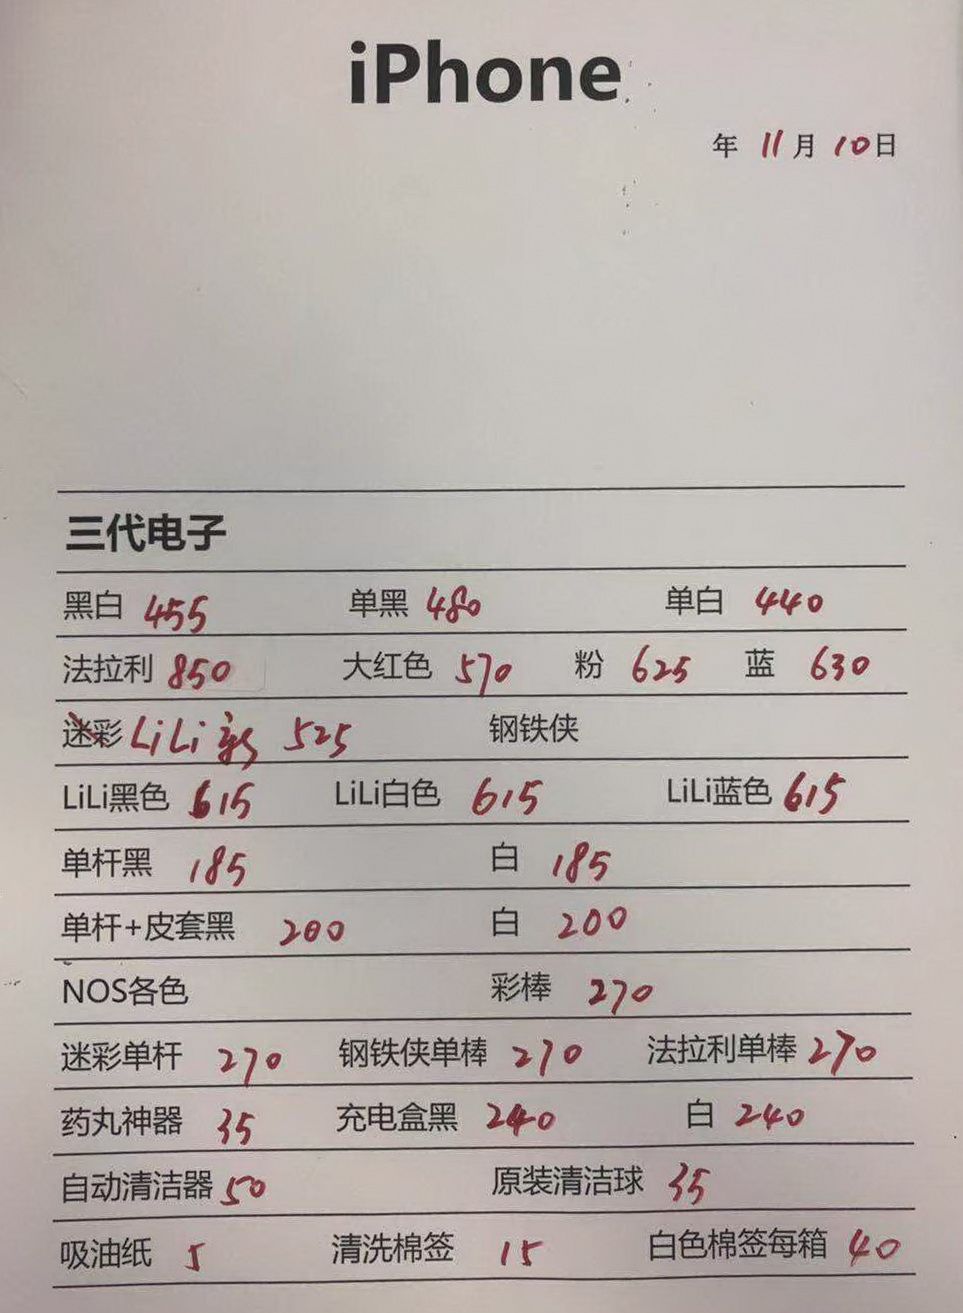 iPhone
年 11月10日
三代电子
黑白 455 单黑 480 单白 440
法拉利 850 大红色 570 粉 625 蓝 630
迷彩 LiLi 525 钢铁侠
LiLi黑色 615 LiLi白色 615 LiLi蓝色 615
单杆黑 185 白 185
单杆+皮套黑 200 白 200
NOS各色 彩棒 270
迷彩单杆 270 钢铁侠单棒 270 法拉利单棒 270
药丸神器 35 充电盒黑 240 白 240
自动清洁器 50 原装清洁球 35
吸油纸 5 清洗棉签 15 白色棉签每箱 40